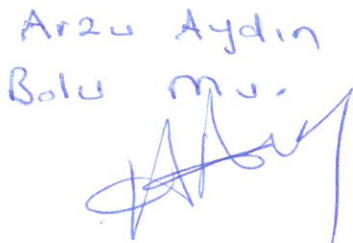 Arzu Aydın
Bolu Mv.